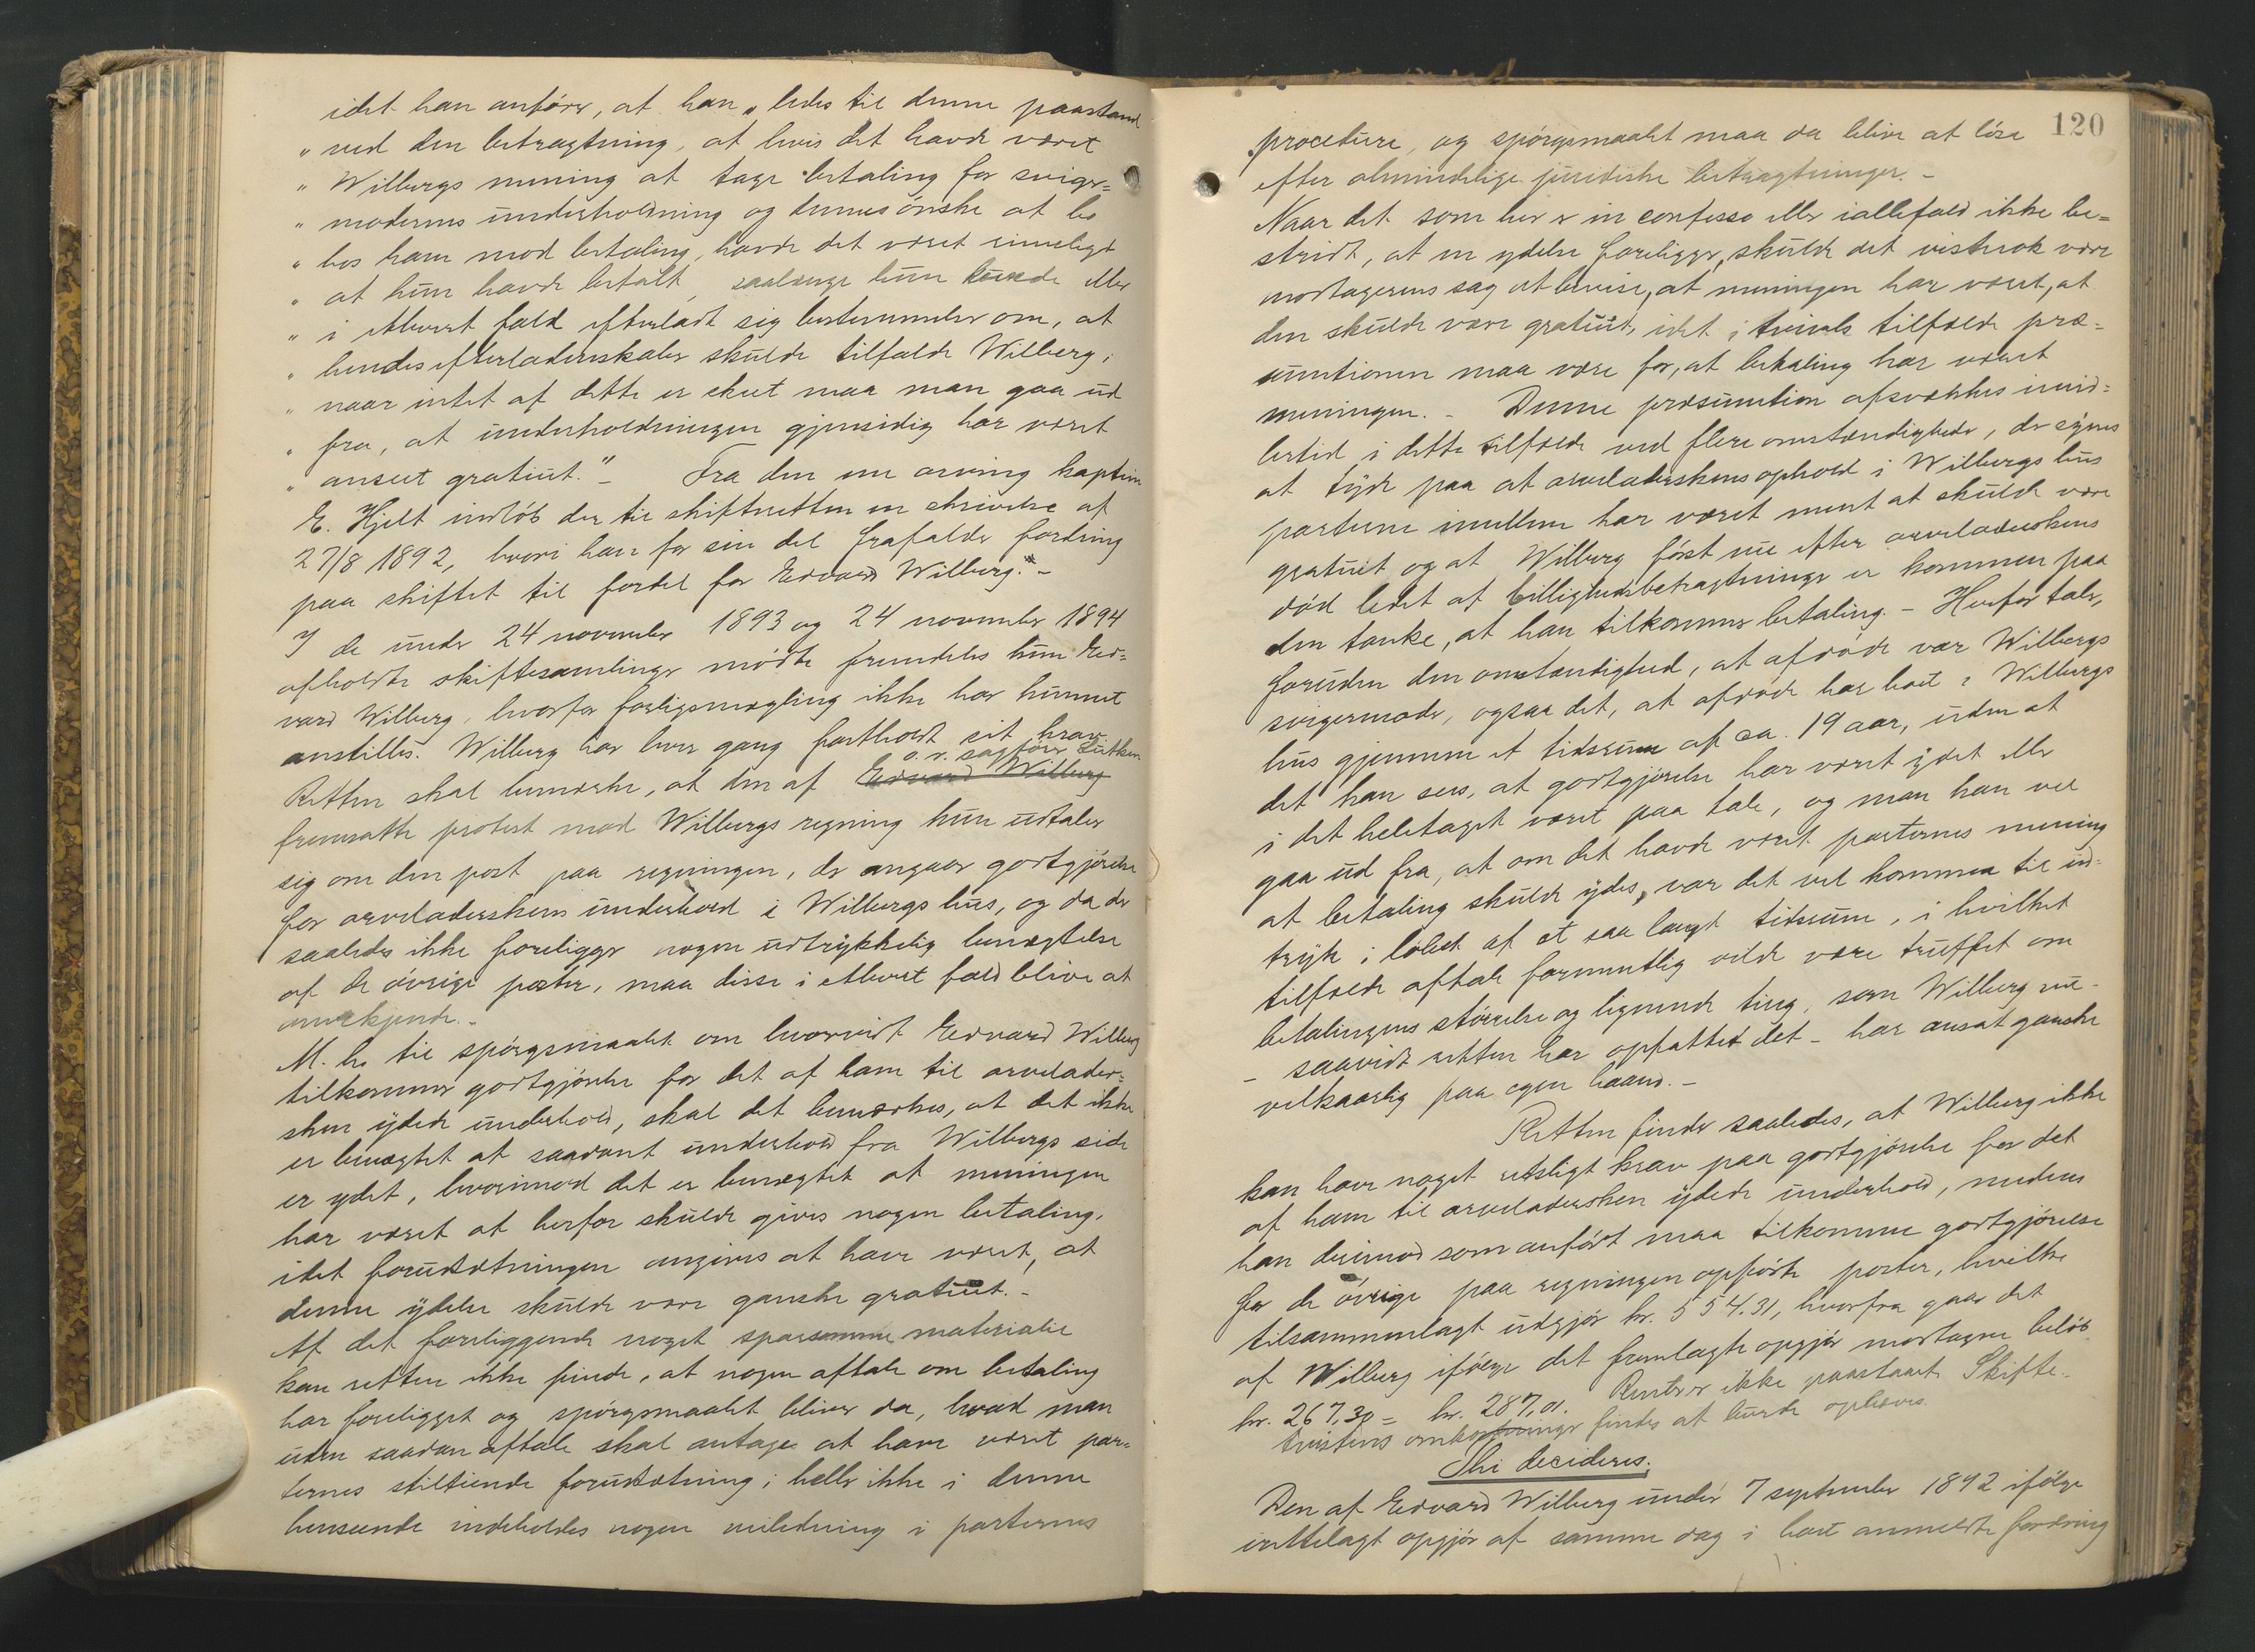 idet han anfører, at han „ledes til denne paastand
„ ved den betragtning, at hvis det havde været
„ Wilbergs mening at tage betaling for sviger=
„ moderens underholdning og dennes ønske at bo
„ hos ham mod betaling, havde det været rimeligt
„ at hun havde betalt, saalænge hun kunde eller
„ i ethvert fald efterladt sig bestemmelse om, at
„ hendes efterladenskaber skulde tilfalde Wilberg;
„ naar intet af dette er skeet maa man gaa ud
„ fra, at underholdningen gjensidig har været
„ anseet gratiut." – Fra den ene arving kaptein
E. Hjelt indløb der til skifteretten en skrivelse af
27/8 1892, hvori han for sin del frafalder fordring
paa skiftet til fordel for Edvard Wilberg. –
I de under 24 november 1893 og 24 november 1894
afholdte skiftesamlinger mødte fremdeles kun Ed=
vard Wilberg, hvorfor forligsmægling ikke har kunnet
anstilles. Wilberg har hver gang fastholdt sit krav.
o. r. sagfører Lütken
Retten skal bemærke, at den af Edvard Wilberg
fremsatte protest mod Wilbergs regning kun udtaler
sig om den post paa regningen, der angaar godtgjørelse
for arveladerskens underhold i Wilbergs hus, og da der
saaledes ikke foreligger nogen udtrykkelig benægtelse
af de øvrige poster, maa disse i ethvert fald blive at
anerkjende. –
M. h. til spørgsmaalet om hvorvidt Edvard Wilberg
tilkommer godtgjørelse for det af ham til arvelader=
sken ydede underhold, skal det bemærkes, at det ikke
er benægtet at saadant underhold fra Wilbergs side
er ydet, hvorimod det er benægtet at meningen
har været at herfor skulde gives nogen betaling,
idet forudsætningen angives at have været, at
denne ydelse skulde være ganske gratiut. –
Af det foreliggende noget sparsomme materiale
kan retten ikke finde, at nogen aftale om betaling
har foreligget og spørgsmaalet bliver da, hvad man
uden saadan aftale skal antage at have været par=
ternes stiltiende forudsætning; heller ikke i denne
henseende indeholdes nogen veiledning i parternes
120
procedure, og spørgsmaalet maa da blive at løse
efter almindelige juridiske betragtninger. –
Naar det som her er in confesso eller iallefald ikke be=
stridt, at en ydelse foreligger, skulde det vistnok være
modtagerens sag at bevise, at meningen har været, at
den skulde være gratiut, idet i tvivls tilfælde præ=
sumtionen maa være for, at betaling har været
meningen. – Denne præsumtion afsvækkes imid=
lertid i dette tilfælde ved flere omstændigheder, der synes
at tyde paa at arveladerskens ophold i Wilbergs hus
parterne imellem har været ment at skulde være
gratiut og at Wilberg først nu efter arveladerskens
død ledet af billighedsbetragtninger er kommen paa
den tanke, at han tilkommer betaling. – Herfor taler,
foruden den omstændighed, at afdøde var Wilbergs
svigermoder, ogsaa det, at afdøde har boet i Wilbergs
hus gjennem et tidsrum af ca. 19 aar, uden at
det kan sees, at godtgjørelse har været ydet eller
i det heletaget været paa tale, og man kan vel
gaa ud fra, at om det havde været parternes mening
at betaling skulde ydes, var det vel kommen til ud=
tryk i løbet af et saa langt tidsrum, i hvilket
tilfælde aftale formentlig vilde være truffet om
betalingens størrelse og lignende ting, som Wilberg nu –
– saavidt retten har opfattet det – har ansat ganske
vilkaarlig paa egen haand. –
Retten finder saaledes, at Wilberg ikke
kan have noget retsligt krav paa godtgjørelse for det
af ham til arveladersken ydede underhold, medens
han derimod som anført maa tilkomme godtgjørelse
for de øvrige paa regningen opførte poster, hvilke
tilsammenlagt udgjør kr. 554.31, hvorfra gaar det
af Wilberg ifølge det fremlagte opgjør modtagne beløb
kr. 267,30 = kr. 287,01. Renter er ikke paastaaet. Skifte-
tvistens omkostninger findes at burde ophæves.
Thi decideres:
Den af Edvard Wilberg under 7 september 1892 ifølge
indtelagt opgjør af samme dag i boet anmeldte fordring